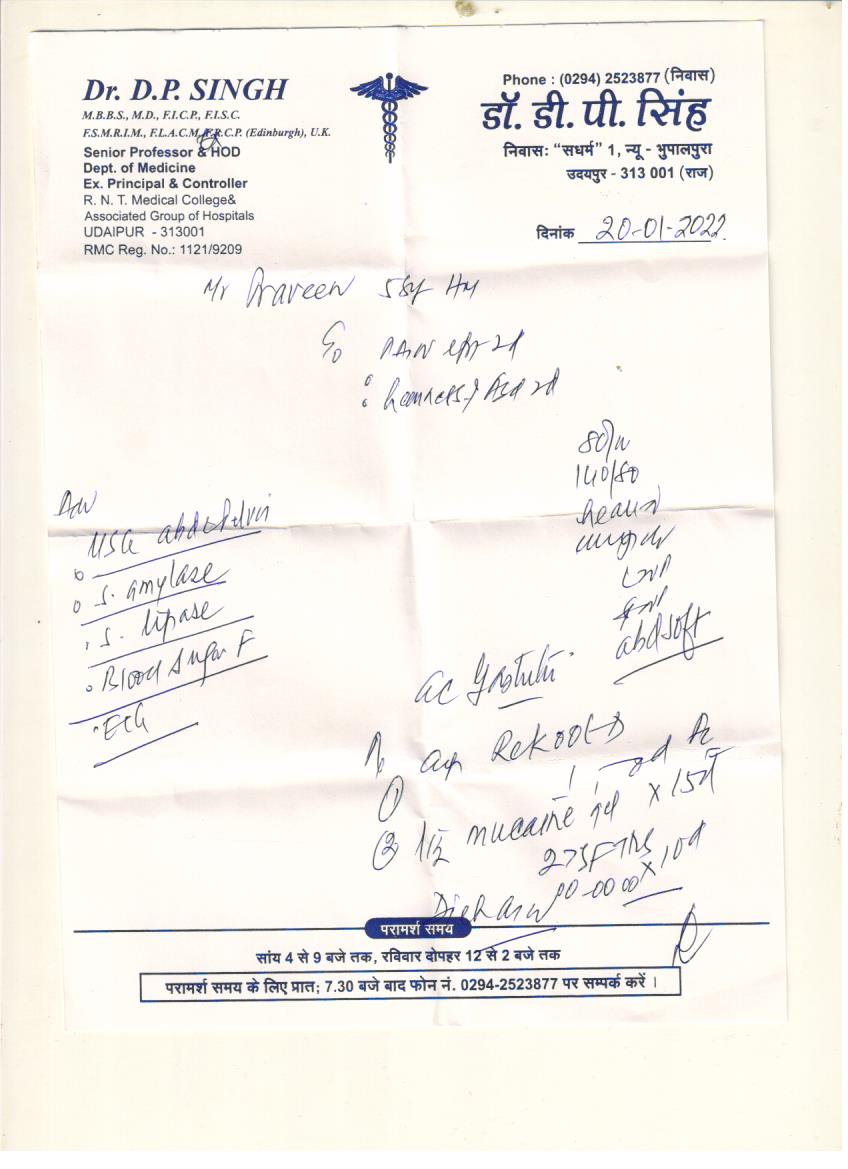 Dr. D.P. SINGH
M.B.B.S., M.D., F.I.C.P., F.I.S.C.
F.S.M.R.I.M., F.L.A.C.M., F.R.C.P. (Edinburgh), U.K.
Senior Professor & HOD
Dept. of Medicine
Ex. Principal & Controller
R. N. T. Medical College&
Associated Group of Hospitals
UDAIPUR - 313001
RMC Reg. No.: 1121/9209
Phone : (0294) 2523877 (निवास)
डॉ. डी. पी. सिंह
निवासः “सधर्म” 1, न्यू - भुपालपुरा
उदयपुर - 313 001 (राज)
दिनांक 20-01-2022
Mr Praveen 58y
80/m
140/80
abd soft
Adv
USG abd
S. amylase
S. lipase
Blood Sugar F
ECG
Ac Gastritis
①
② mucaine gel x 15d
2 TSF TDS x 10d
परामर्श समय
सांय 4 से 9 बजे तक, रविवार दोपहर 12 से 2 बजे तक
परामर्श समय के लिए प्रात; 7.30 बजे बाद फोन नं. 0294-2523877 पर सम्पर्क करें ।